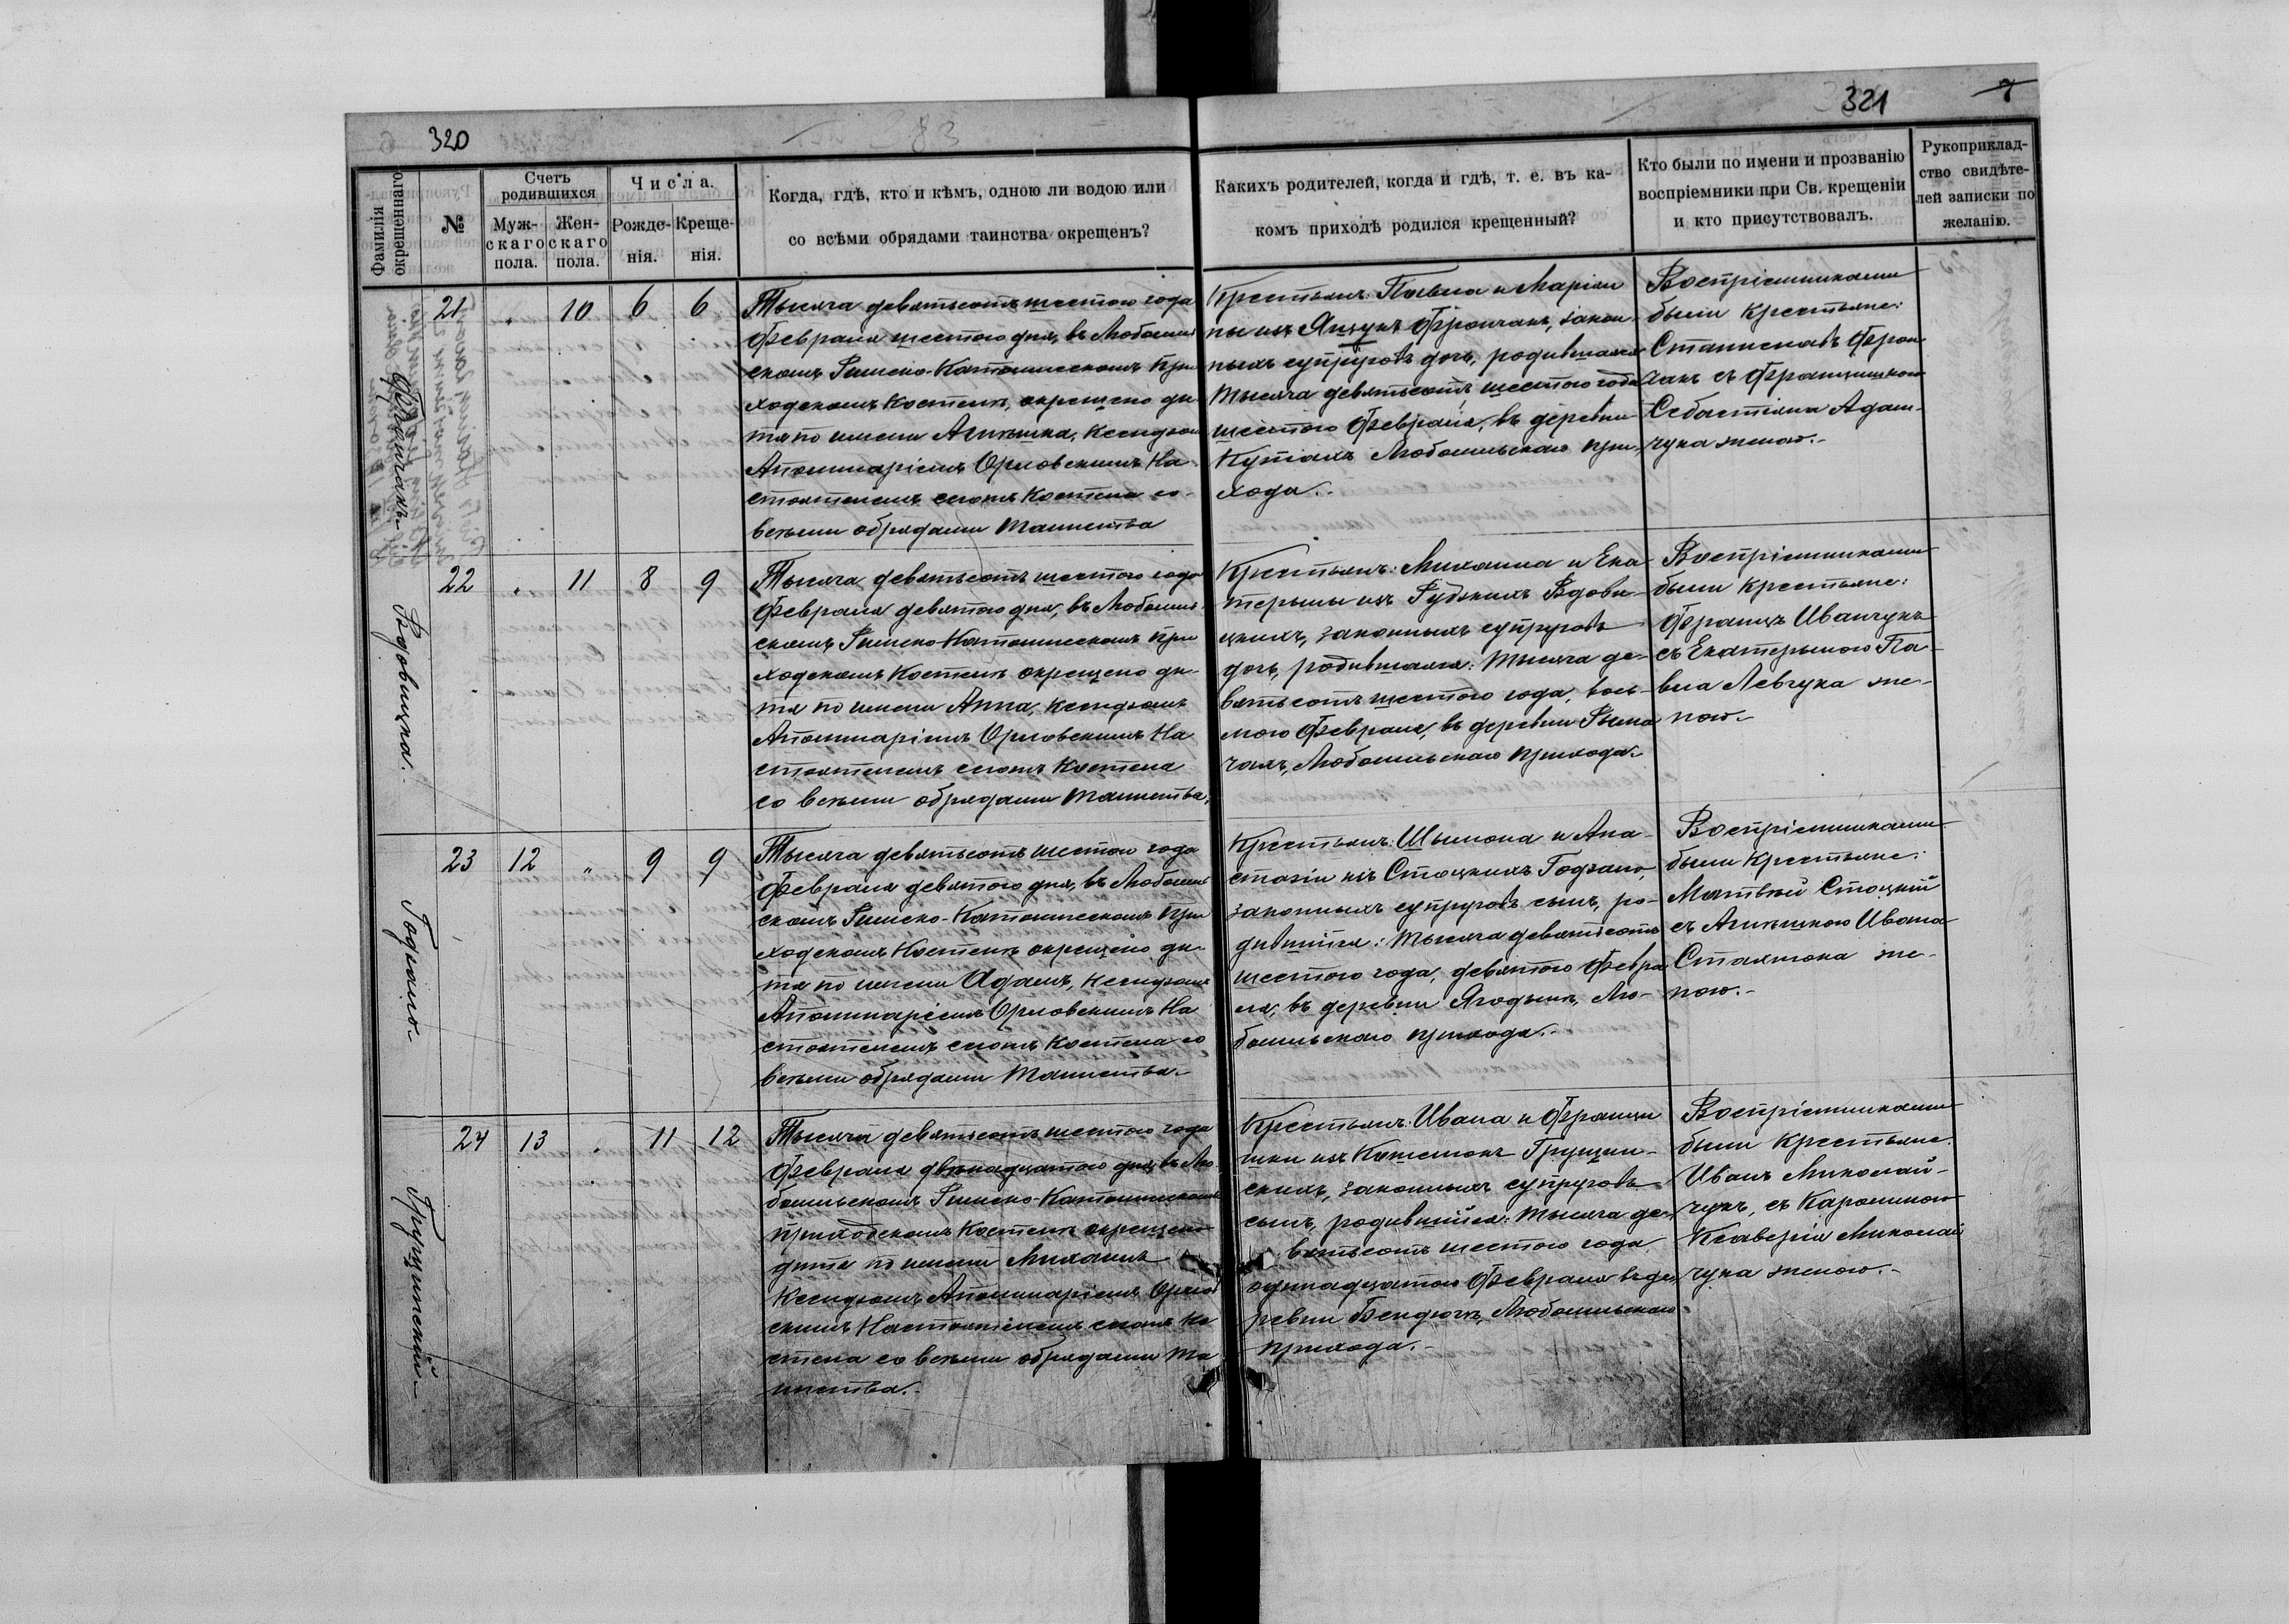 320
321
7
Фамилія окрещеннаго
№
Счетъ родившихся
Муж-скаго пола.
Жен-скаго пола.
Числа.
Рожде-нія.
Креще-нія.
Когда, гдѣ, кто и кѣмъ, одною ли водою или
со всѣми обрядами таинства окрещенъ?
Какихъ родителей, когда и гдѣ, т. е. въ ка-
комъ приходѣ родился крещенный?
Кто были по имени и прозванію
воспріемники при Св. крещеніи
и кто присутствовалъ.
Рукоприклад-
ство свидѣте-
лей записки по
желанію.
Франчакъ
21 „ 10 6 6
Тысяча девятьсотъ шестого года
Февраля шестого дня, въ Любомль
скомъ Римско-Католическомъ При
ходскомъ Костелѣ, окрещено ди-
тя по имени Агнѣшка, Ксендзомъ
Аполинаріемъ Орловскимъ На
стоятелемъ сегожъ Костела со
всѣми обрядами Таинства
Крестьянъ: Павла и Маріан
ны изъ Яцукъ Франчакъ, закон
ныхъ супруговъ дочь, родившаяся
Тысяча девятьсотъ шестого года
шестого Февраля, въ деревни
Кутахъ Любомльскаго при
хода.
Воспріемниками
были Крестьяне:
Станиславъ Фран
чакъ съ Францишкою
Себастіяна Адам-
чука женою.
Вдовицка.
22 „ 11 8 9
Тысяча девятьсотъ шестого года
Февраля девятого дня, въ Любомль
скомъ Римско-Католическомъ При
ходскомъ Костелѣ окрещено ди-
тя по имени Анна, Ксендзомъ
Аполинаріемъ Орловскимъ На
стоятелемъ сегожъ Костела
со всѣми обрядами Таинства.
Крестьянъ: Михаила и Ека
терыны изъ Рудзкихъ Вдови-
цкихъ, законныхъ супруговъ
дочь, родившаяся: Тысяча де-
вятьсотъ шестого года, вось-
мого Февраля, въ деревни Рыма
чахъ, Любомльскаго прихода.
Воспріемниками
были Крестьяне:
Францъ Иванчукъ
съ Екатерыною Па
вла Левчука же-
ною.
Годзало
23 12 „ 9 9
Тысяча девятьсотъ шестого года
Февраля девятого дня, въ Любомль
скомъ Римско-Католическомъ При
ходскомъ Костелѣ окрещено ди-
тя по имени Адамъ, Ксендзомъ
Аполинаріемъ Орловскимъ На
стоятелемъ сегожъ Костела со
всѣми обрядами Таинства.
Крестьянъ: Шымона и Ана-
стазіи изъ Стоцкихъ Годзало,
законныхъ супруговъ сынъ, ро-
дившійся: Тысяча девятьсотъ
шестого года, девятого Февра
ля, въ деревни Ягодынѣ, Лю-
бомльскаго прихода.
Воспріемниками
были Крестьяне:
Матвѣй Стоцкій
съ Агнѣшкою Ивана
же-
ною.
Грущинскій
24 13 „ 11 12
Тысяча девятьсотъ шестого года
Февраля двѣнадцатого дня, въ Лю
бомльскомъ Римско-Католическомъ
приходскомъ Костелѣ окрещено
дитя по имени Михаилъ
Ксендзомъ Аполинаріемъ Орлов
скимъ Настоятелемъ сегожъ Ко
стела со всѣми обрядами Та
инства.
Крестьянъ: Ивана и Францы
шки изъ Грущин-
скихъ, законныхъ супруговъ
сынъ, родившійся: Тысяча де-
вятьсотъ шестого года
одинадцатого Февраля въ де
ревни Бендюгѣ, Любомльскаго
прихода.
Воспріемниками
были Крестьяне.
Иванъ Миколай-
чукъ, съ Каролиною
Ксаверія Миколай
чука женою.